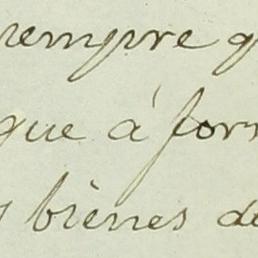 siempre q
gue á for
bienes de